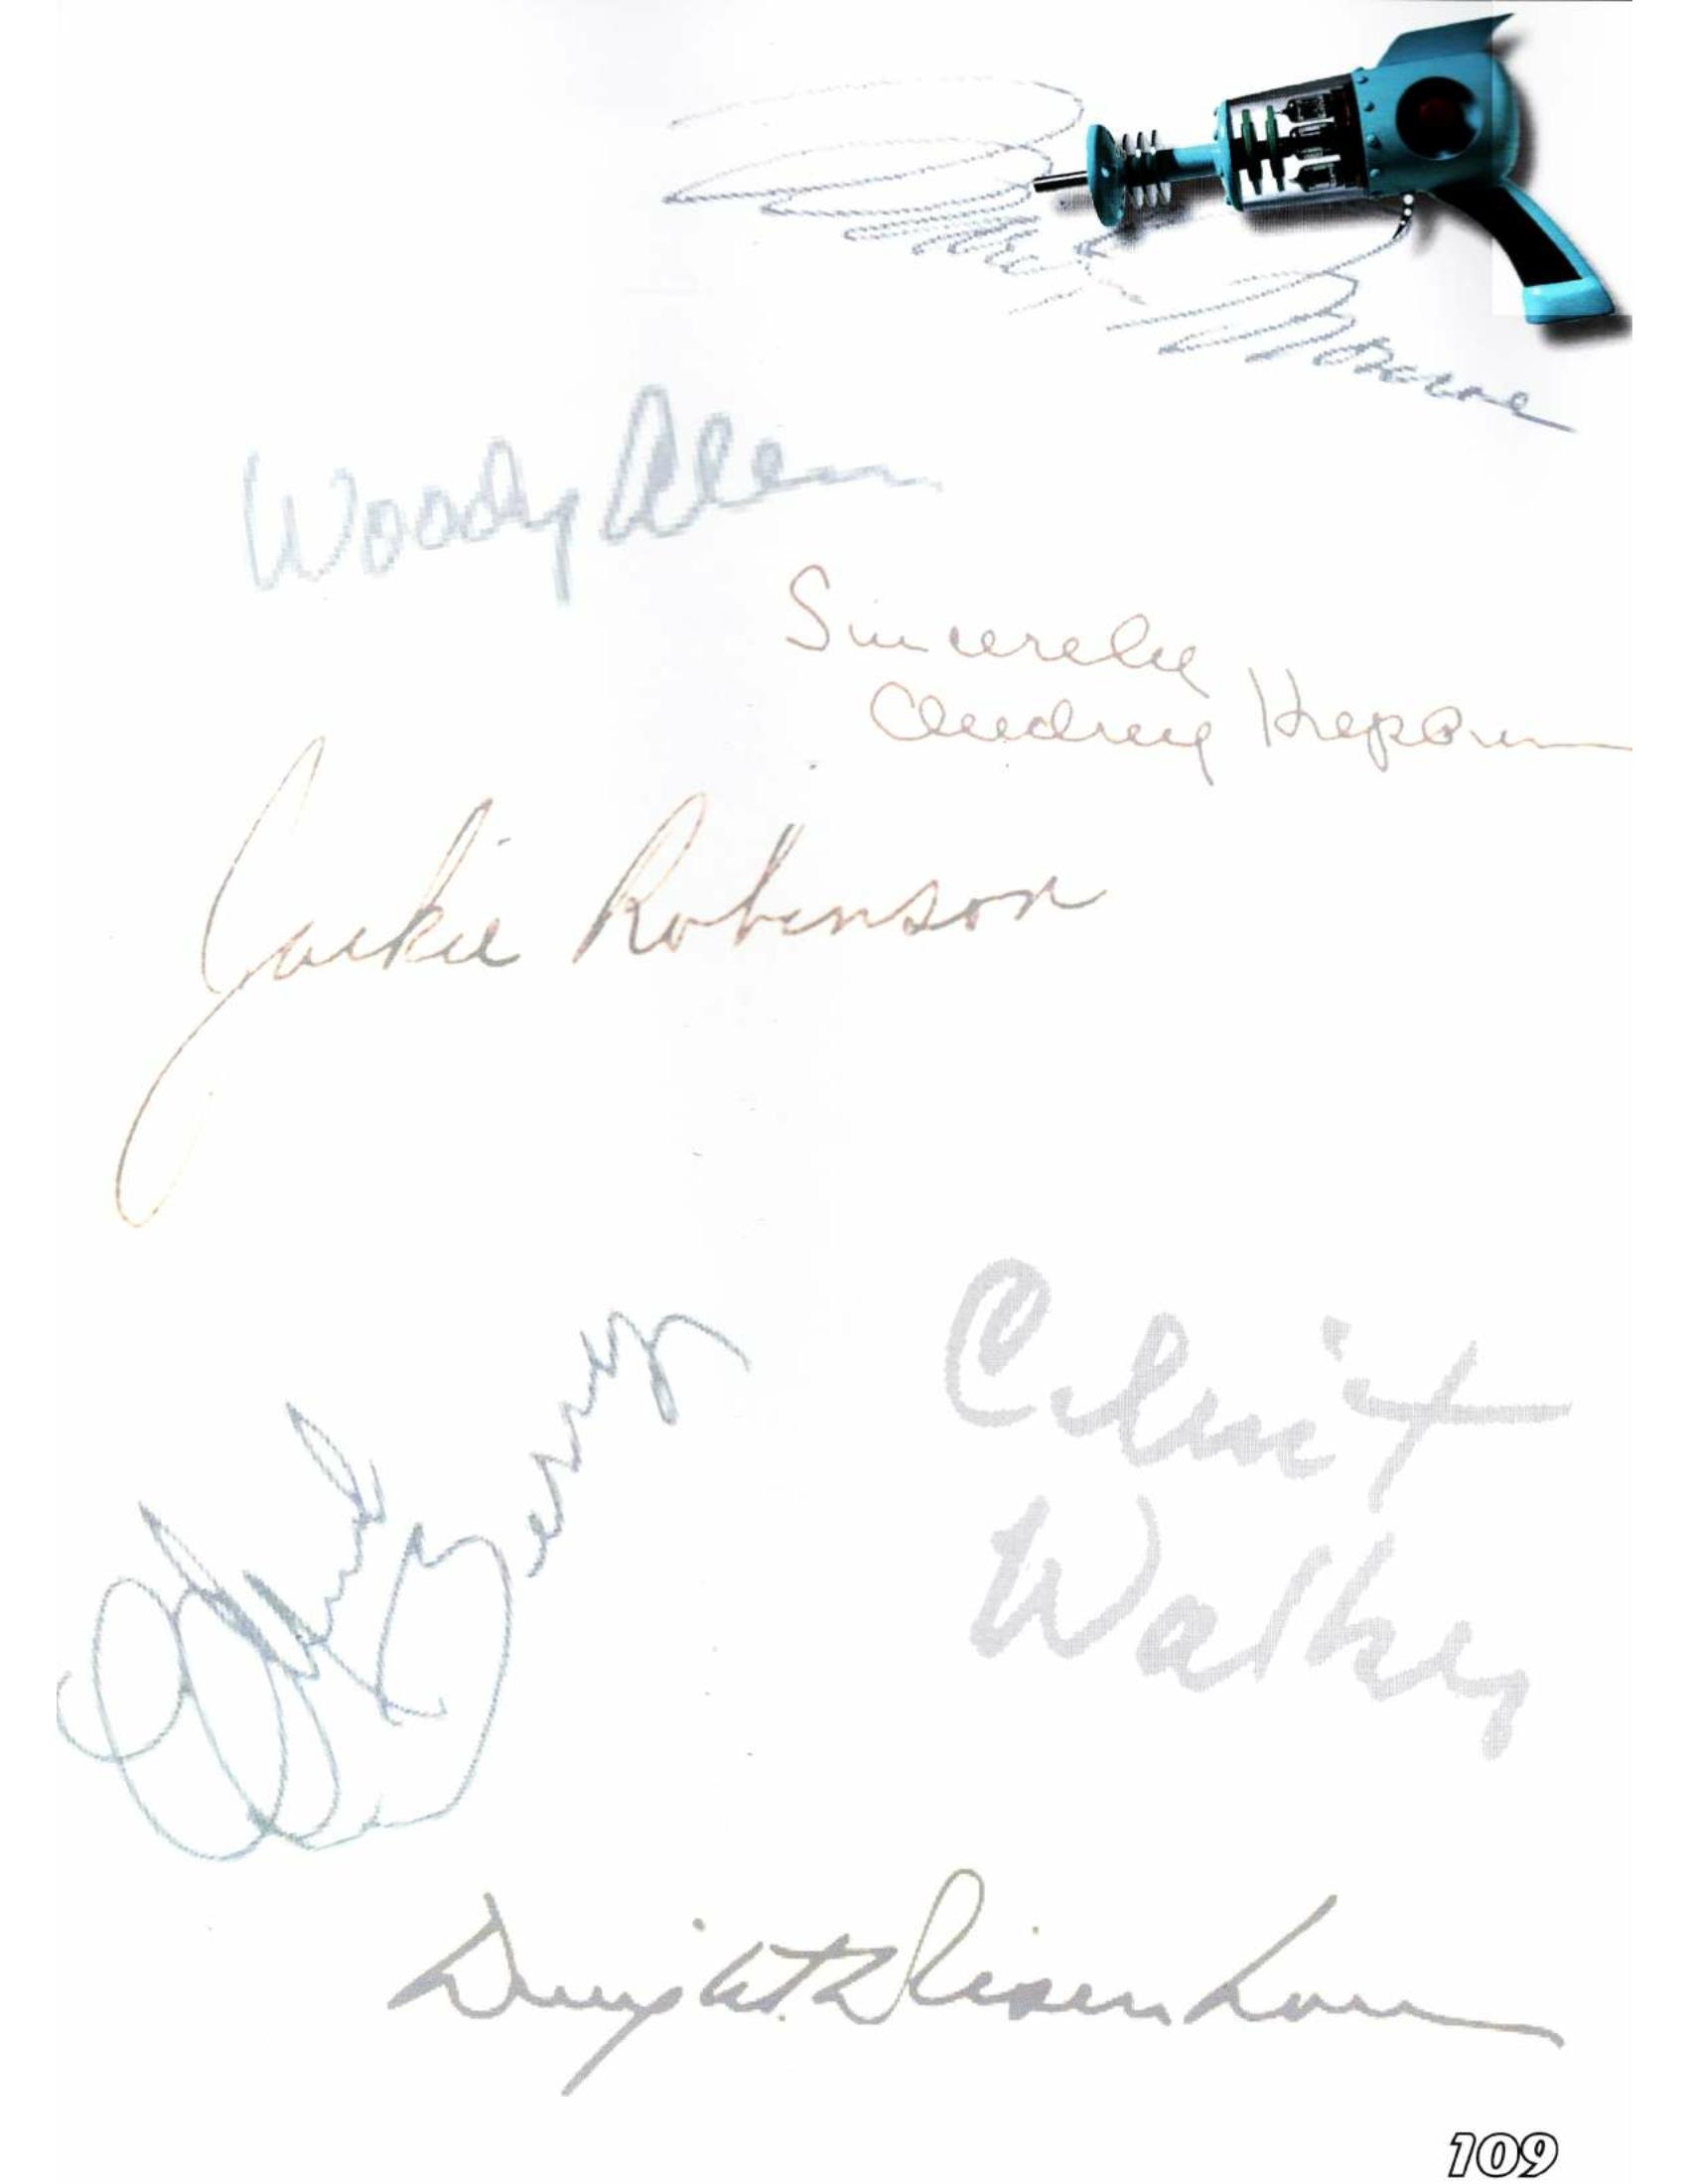 Marilyn Monroe
Woody Allen
Sincerely
Audrey Hepburn
Jackie Robinson
Chuck Berry
Clint
Walker
Dwight D Eisenhower
109